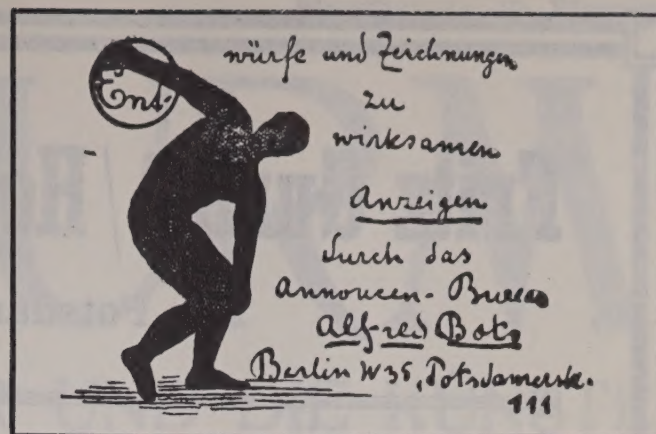 Ent-
würfe und Zeichnungen
zu
wirksamen
Anzeigen
durch das
Annoncen-Bureau
Alfred Botz
Berlin W 35, Potsdamerstr.
111